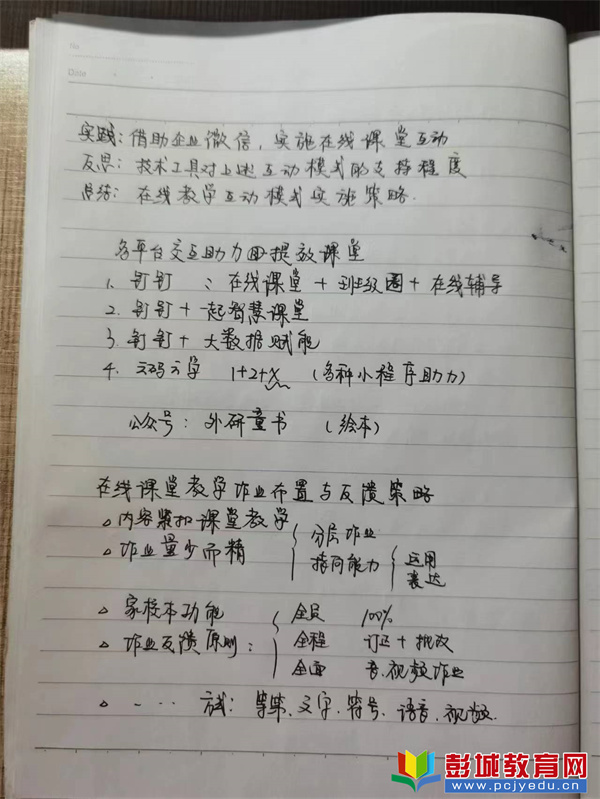 No
Date
实践：借助企业微信，实施在线课堂互动
反思：技术工具对上述互动模式的支持程度
总结：在线教学互动模式实施策略.
各平台交互助力 提效课堂
1. 钉钉 ：在线课堂 + 班级圈 + 在线辅导
2. 钉钉 + 一起智慧课堂
3. 钉钉 + 大数据赋能
4. 1+2+x （各种小程序助力）
公众号：外研童书 （绘本）
在线课堂教学作业布置与反馈策略
△内容紧扣课堂教学
△作业量少而精 分层作业
指向能力 运用
表达
△家校本功能 全员 100%
△作业反馈原则： 全程 订正 + 批改
全面 音、视频作业
△ - ···· 方式： 等第、文字、符号、语音、视频.
彭城教育网
www.pcjyedu.cn